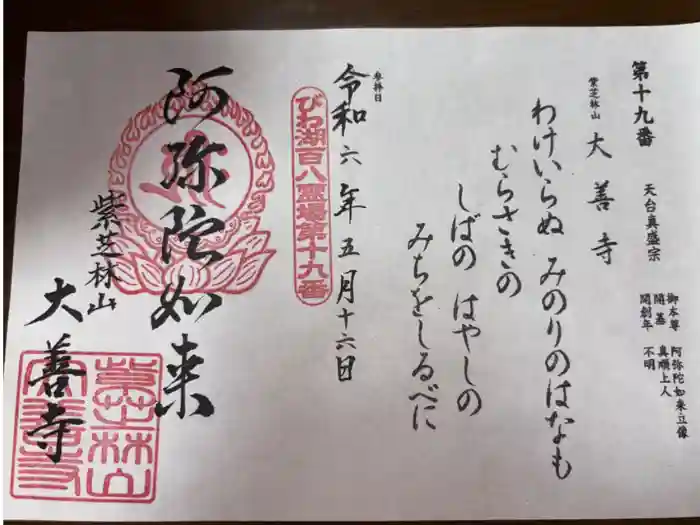 第十九番
天台真盛宗
御本尊 阿弥陀如来立像
開基 真順上人
開創年 不明
紫芝林山 大善寺
わけいらぬ みのりのはなも
むらさきの
しばの はやしの
みちをしるべに
参拝日
令和六年五月十六日
びわ湖百八霊場第十九番
阿弥陀如来
紫芝林山
大善寺